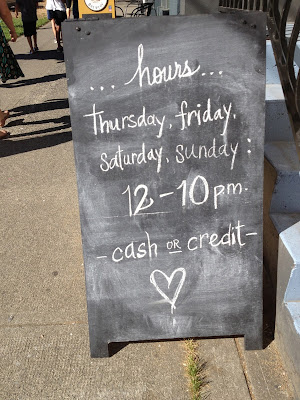 ...hours...
thursday, friday,
saturday, sunday:
12-10pm.
-cash OR credit-